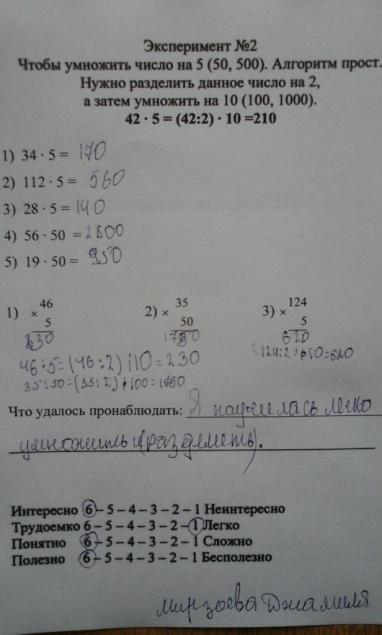 Эксперимент №2
Чтобы умножить число на 5 (50, 500). Алгоритм прост.
Нужно разделить данное число на 2,
а затем умножить на 10 (100, 1000).
42 · 5 = (42:2) · 10 =210
1) 34 · 5 = 170
2) 112 · 5 = 560
3) 28 · 5 = 140
4) 56 · 50 = 2800
5) 19 · 50 = 950
1) × 46 2) × 35 3) × 124
5 50 5
230 1750 620
46:5=(46:2) 10=230
35:50=(35:2) 100=1750
(124:2) 10=620
Что удалось пронаблюдать: Я научилась легко
умножить (разделить).
Интересно 6 – 5 – 4 – 3 – 2 – 1 Неинтересно
Трудоемко 6 – 5 – 4 – 3 – 2 – 1 Легко
Понятно 6 – 5 – 4 – 3 – 2 – 1 Сложно
Полезно 6 – 5 – 4 – 3 – 2 – 1 Бесполезно
Мирзоева Джамиля